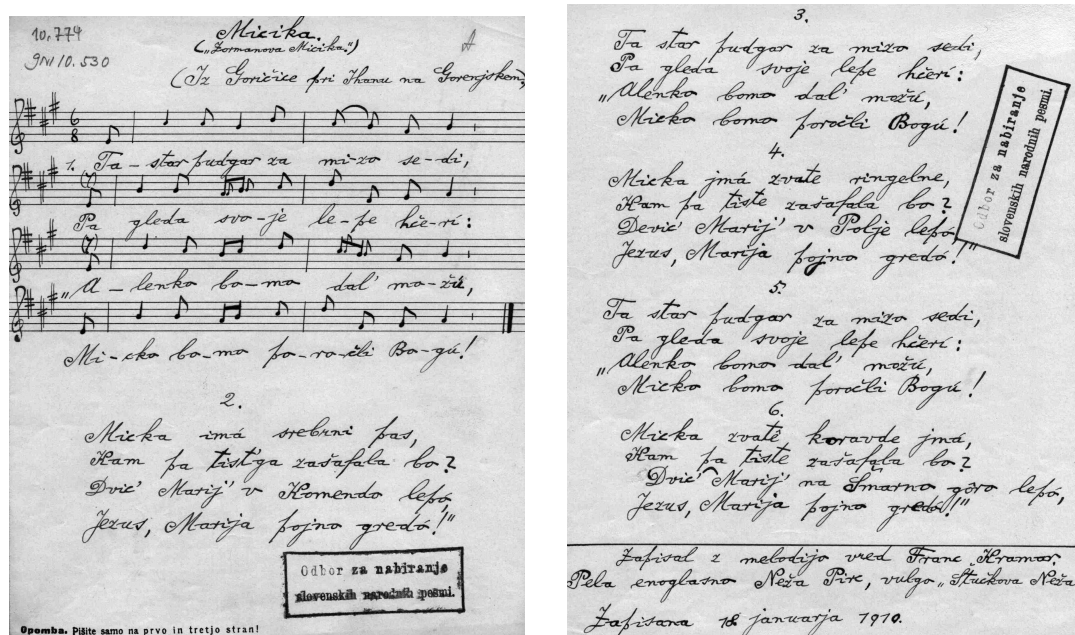 10.774
GNI 10.530
A
Micika.
("Zormanova Micika.")
(Iz Goričice pri Ihanu na Gorenjskem)
1. Ta-star pudgar za mi-zo se-di,
Pa gleda svo-je le-pe hče-rí:
„A-lenko bo-mo dal' mo-žú,
Mi-cko bo-mo po-ro-čli Bo-gú!
2.
Micka imá srebrni pas,
Kam pa tist'ga zašafala bo?
Dvic' Marij' v Komendo lepó,
Jezus, Marija pojno gredó!"
Odbor za nabiranje
slovenskih narodnih pesmi.
Opomba. Pišite samo na prvo in tretjo stran!
3.
Ta star pudgar za mizo sedi,
Pa gleda svoje lepe hčerí:
„Alenko bomo dal' možú,
Micko bomo poročli Bogú!
4.
Micka jmá zvate ringelne,
Kam pa tiste zašafala bo?
Devic' Marij' v Polje lepó,
Jezus, Marija pojno gredó!"
Odbor za nabiranje
slovenskih narodnih pesmi.
5.
Ta star pudgar za mizo sedi,
Pa gleda svoje lepe hčerí:
„Alenko bomo dal' možú,
Micko bomo poročli Bogú!
6.
Micka zvatě koravde jmá,
Kam pa tiste zašafala bo?
Dvic' Marij' na Šmarno goro lepó,
Jezus, Marija pojno gredó!"
Zapisal z melodijo vred Franc Kramar,
Pela enoglasno Neža Pirc, vulgo „Štuckova Neža
Zapisana 18. januarja 1910.